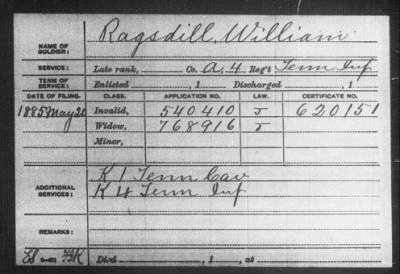 NAME OF SOLDIER: Ragsdill, William
SERVICE: Late rank, Co. A, 4 Reg't Tenn Inf
TERM OF SERVICE: Enlisted , 1 Discharged , 1
DATE OF FILING. CLASS. APPLICATION NO. LAW. CERTIFICATE NO.
1885 May 20 Invalid, 540410 J 620151
Widow, 768916 J
Minor,
ADDITIONAL SERVICES: K 1 Tenn Cav
K 4 Tenn Inf
REMARKS:
Died , 1 , at